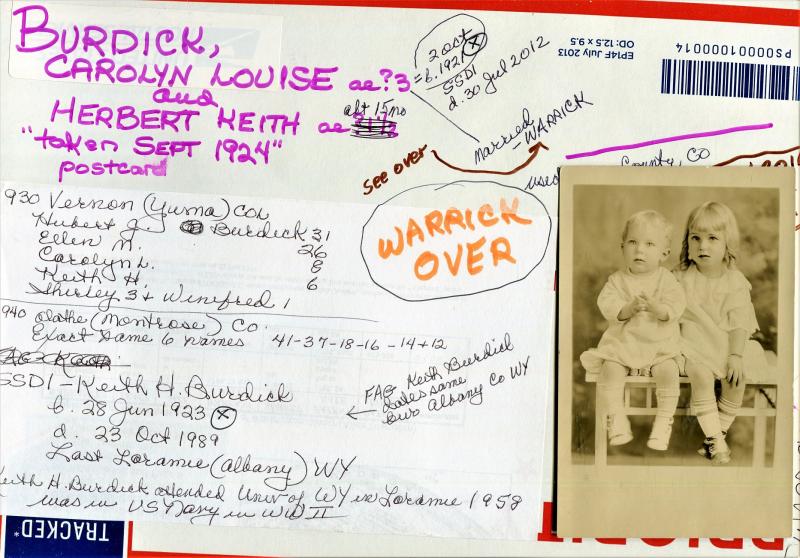 BURDICK,
CAROLYN LOUISE ae? 3
and
HERBERT KEITH ae
abt 15 mo
"taken SEPT 1924"
postcard
2 Oct
= b. 1921 X
SSDI
d. 30 Jul 2012
married
WARRICK
see over
used
County, CO
WARRICK
OVER
EP14F July 2013
OD: 12.5 x 9.5
PS00001000014
930 Vernon (Yuma) COL
Hubert J. Burdick 31
Ellen M. 26
Carolyn L. 8
Keith H. 6
Shirley 3 + Winifred 1
940 Olathe (Montrose) Co.
Exact same 6 names 41-37-18-16-14+12
SSDI - Keith H. Burdick
b. 28 Jun 1923 X
d. 23 Oct 1989
Last Loramie (Albany) WY
← FAG Keith Burdick
dates same
bur Albany Co WY
Keith H. Burdick attended Univ of WY in Loramie 1952
was in US Navy in WW II
TRACKED*